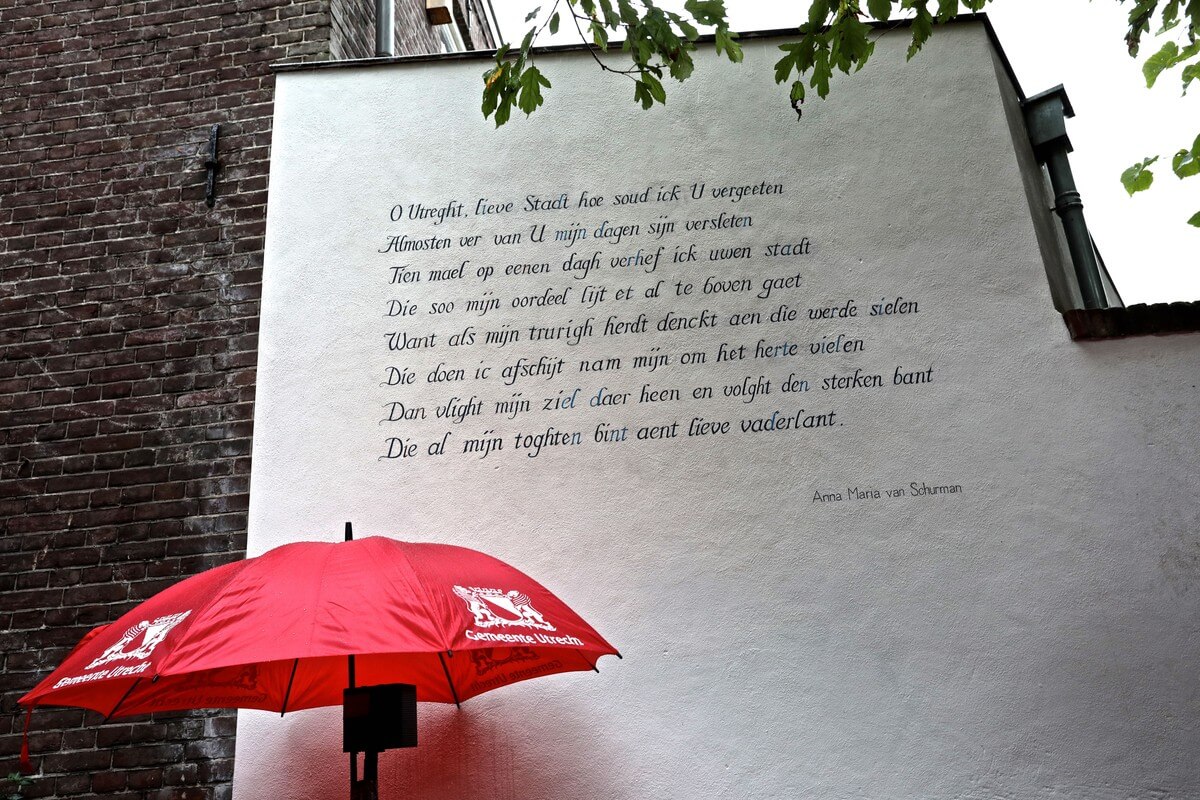 O Utreght, lieve Stadt hoe soud ick U vergeeten
Almosten ver van U mijn dagen sijn versleten
Tien mael op eenen dagh verhef ick uwen stadt
Die soo mijn oordeel lijt et al te boven gaet
Want als mijn trurigh herdt denckt aen die werde sielen
Die doen ic afschijt nam mijn om het herte vielen
Dan vlight mijn ziel daer heen en volght den sterken bant
Die al mijn toghten bint aent lieve vaderlant.
Anna Maria van Schurman
Gemeente Utrecht
Gemeente Utrecht